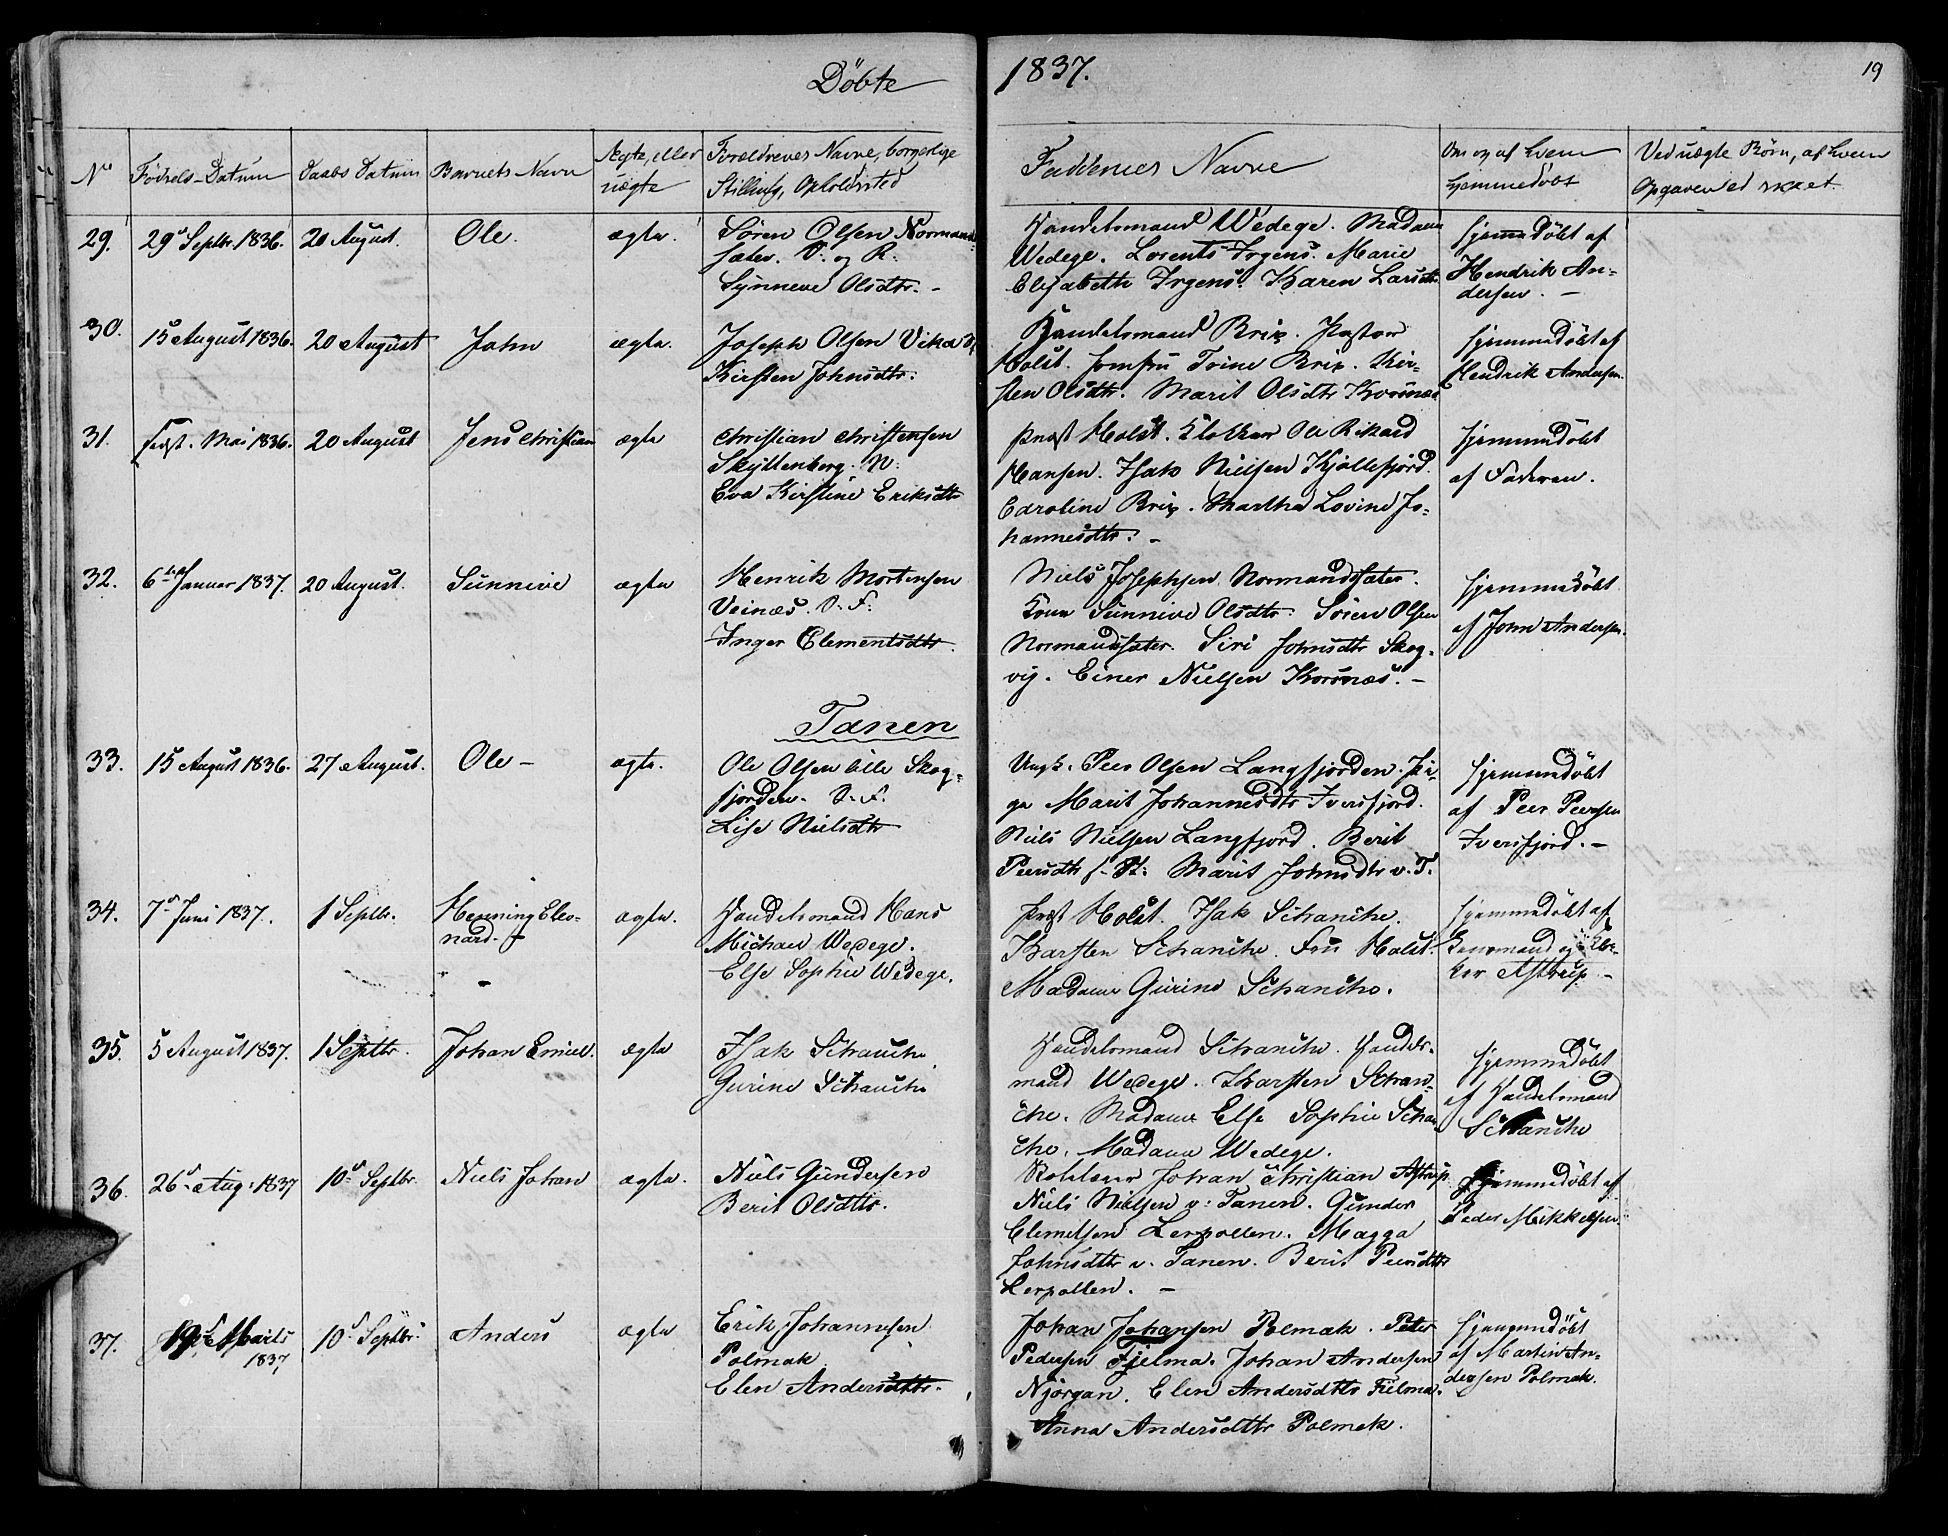 Döbte 1837. 19
No Fødsels-Datum Daabs Datum Barnets Navn Ægte, eller uægte Forældrenes Navne, borgerlige Stilling, Opholdsted Faddernes Navne Om og af hvem hjemmedøbt Ved uægte Børn, af hvem Opgaven ed skeet.
29. 29 Septbr. 1836. 20 August. Ole. ægte.
Søren Olsen Normand-
sæter. V. og R.
Synneve Olsdtr. -
Handelsmand Wedege. Madam
Wedege. Lorents Irgens. Marie
Elisabeth Irgens. Karen Larsdtr.
hjemmedöbt af
Hendrik An-
dersen. -
30. 15 August 1836. 20 August John ægte.
Joseph Olsen Vika
Kirsten Johnsdtr.
Handelsmand Brix. Pastor
Holst. Jomfru Trine Brix. Kir-
sten Olsdtr. Marit Olsdtr Korsnæs
hjemmedöbt af
Hendrik Andersen.
31. Mai 1836. 20 August Jens Christian ægte
Christian Christensen
Skyttenberg. N:
Eva Kirstine Eriksdtr
Præst Holst. Klokker Ole Rikard
Hansen. Isak Nielsen Kjøllefjord.
Caroline Brix. Martha Lovine Jo-
hannesdtr. -
hjemmedöbt
af Faderen.
32. 6te Januar 1837. 20 August. Sunnive ægte
Henrik Mortensen
Veinæs. S. F:
Inger Clementsdtr.
Niels Josephsen Normandsæter.
Kone Sunnive Olsdtr. Sören Olsen
Normandsæter. Siri Johnsdtr Skog-
vig. Einer Nielsen Korsnæs. -
hjemmedöbt
af John Andersen.
Tanen
33. 15 August 1836. 27 August. Ole - ægte.
Ole Olsen lille Skog-
fjorden. S. F.
Lise Nielsdtr
Ungk. Peer Olsen Langfjorden. Pi-
ge Marit Johannesdtr Iversfjord.
Niels Nielsen Langfjord. Berit
Peersdtr f. St: Marit Johnsdtr v. T.
hjemmedöbt
af Peer Peersen
Iversfjord. -
34. 7de Juni 1837. 1 Septbr. Henning Eleo-
nard. - ægte.
Handelsmand Hans
Michael Wedege.
Else Sophie Wedege.
Præst Holst. Isak Schanche.
Karsten Schanche. Fru Holst.
Madame Gurine Schanche.
hjemmedöbt af
Astrup -
35. 5 August 1837. 1 Septbr. Johan Emiel. ægte
Isak Schanche
Gurine Schanche
Handelsmand Schanche. Handels-
mand Wedege. Karsten Schan-
che. Madame Else Sophie Scha-
che. Madam Wedege.
hjemmedöbt
af Handelsmand
Schanche
36. 26de Aug: 1837 10de Septbr. Niels Johan ægte.
Niels Gundersen
Berit Olsdtr.
Johan Christian Astrup
Niels Nielsen v: Tanen. Gunder
Clemetsen Lerpollen. Magga
Johnsdtr v. Tanen. Berit Peersdtr
Lerpollen. -
hjemmedöbt af
Peder Mikkelsen
37. 19de Marts
1837 10de Septbr. Anders ægte
Erik Johannesen
Polmak
Elen Andersdtr.
Johan Johansen Polmak. Peter
Pedersen Fjelma. Johan Andersen
Njørgan. Elen Andersdtr Fielma.
Anna Andersdtr Polmak.
hjemmedöbt
af Martin An-
dersen Polmak.